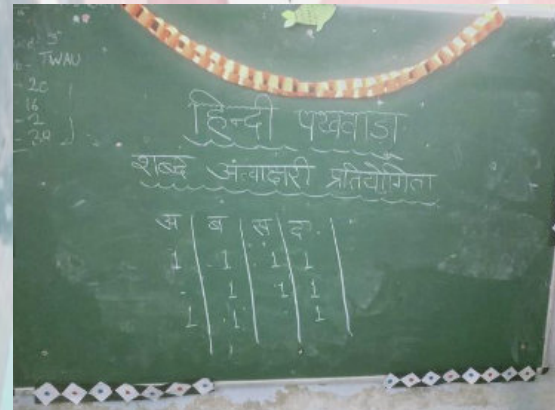 TWAU
20
16
2
हिन्दी पखवाडा
शब्द अंत्याक्षरी प्रतियोगिता
अ | ब | स | द |
1 | 1 | 1 | 1 |
- | 1 | 1 | 1 |
1 | 1 | | 1 |